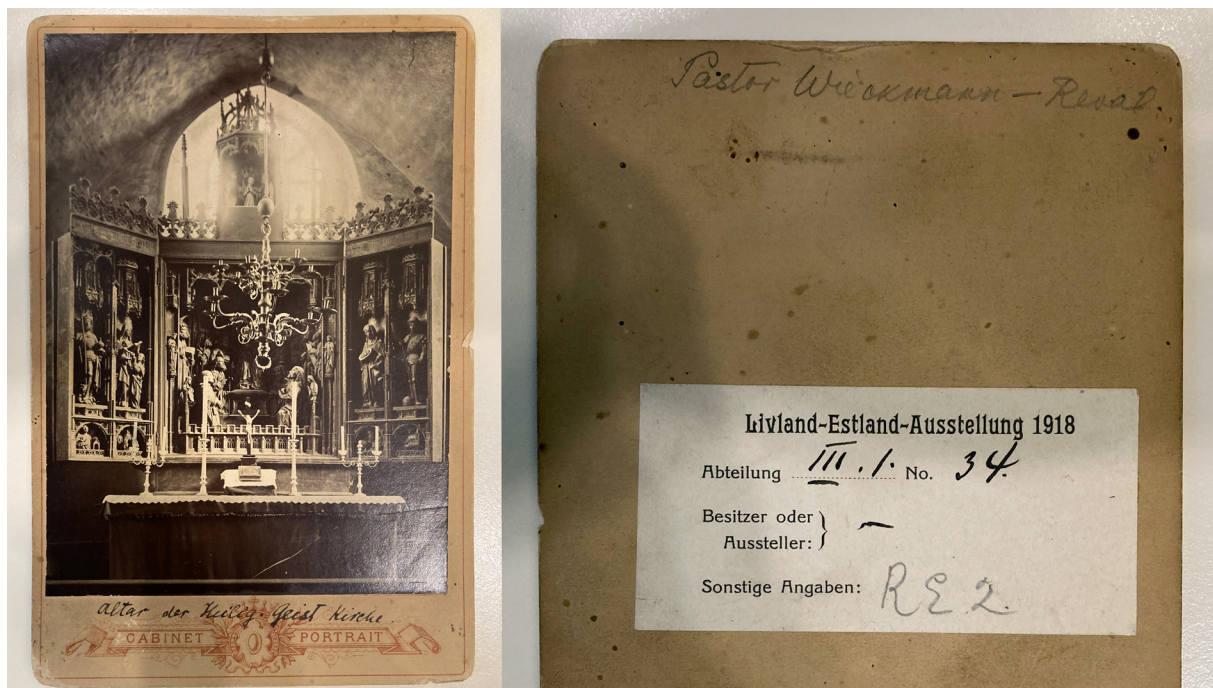 Altar der Heilig. Geist Kirche.
CABINET PORTRAIT
Pastor Wieckmann – Reval.
Livland-Estland-Ausstellung 1918
Abteilung III. 1. No. 34.
Besitzer oder } –
Aussteller:
Sonstige Angaben: RE 2.